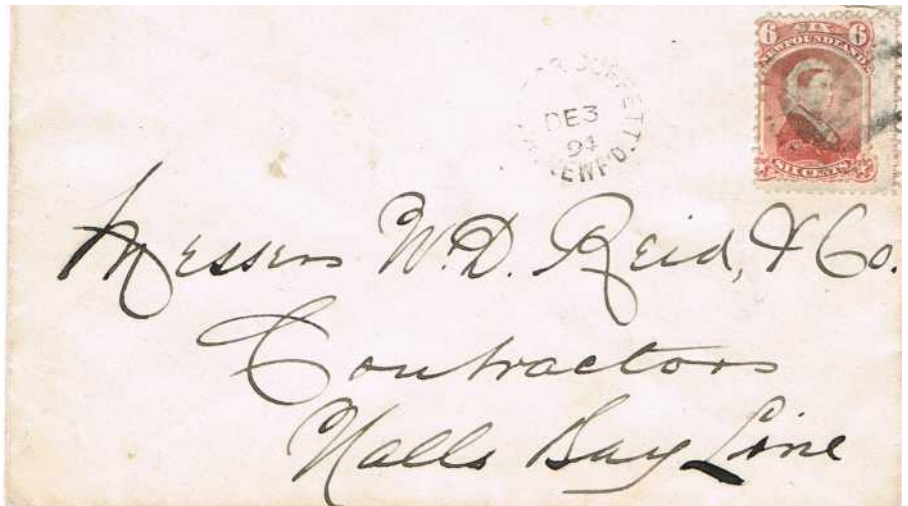 6 SIX 6
NEWFOUNDLAND
SIX CENTS
DE3
94
NEWF'D.
Messers W.D. Reid, & Co.
Contractors
Halls Bay Line